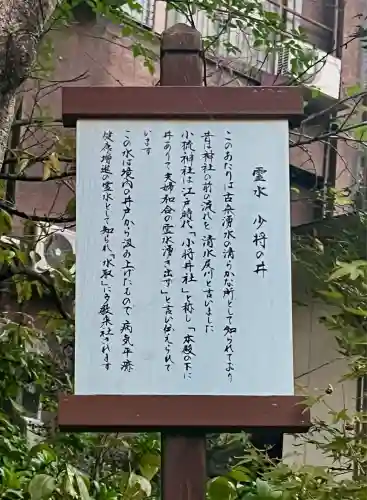 霊水 少将の井
このあたりは古来湧水の清らかな所として知られてより
昔は神社の前の流れを「清水尻川と言いました
小梳神社は江戸時代「小将井社」と称し「本殿の下に
井ありて夫婦和合の霊水湧き出ず」と言い伝えられて
います
この水は境内の井戸から汲み上げたもので 病気平癒
健康増進の霊水として知られ「水取」に多数来社されます